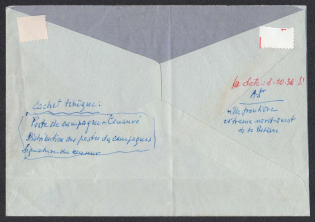 Cachet tchèque :
Poste de campagne
Distribution des postes de campagnes
Signature du
la date : 8-10-38 !
AS
ville frontière
extrême nord-ouest
de la Bohême